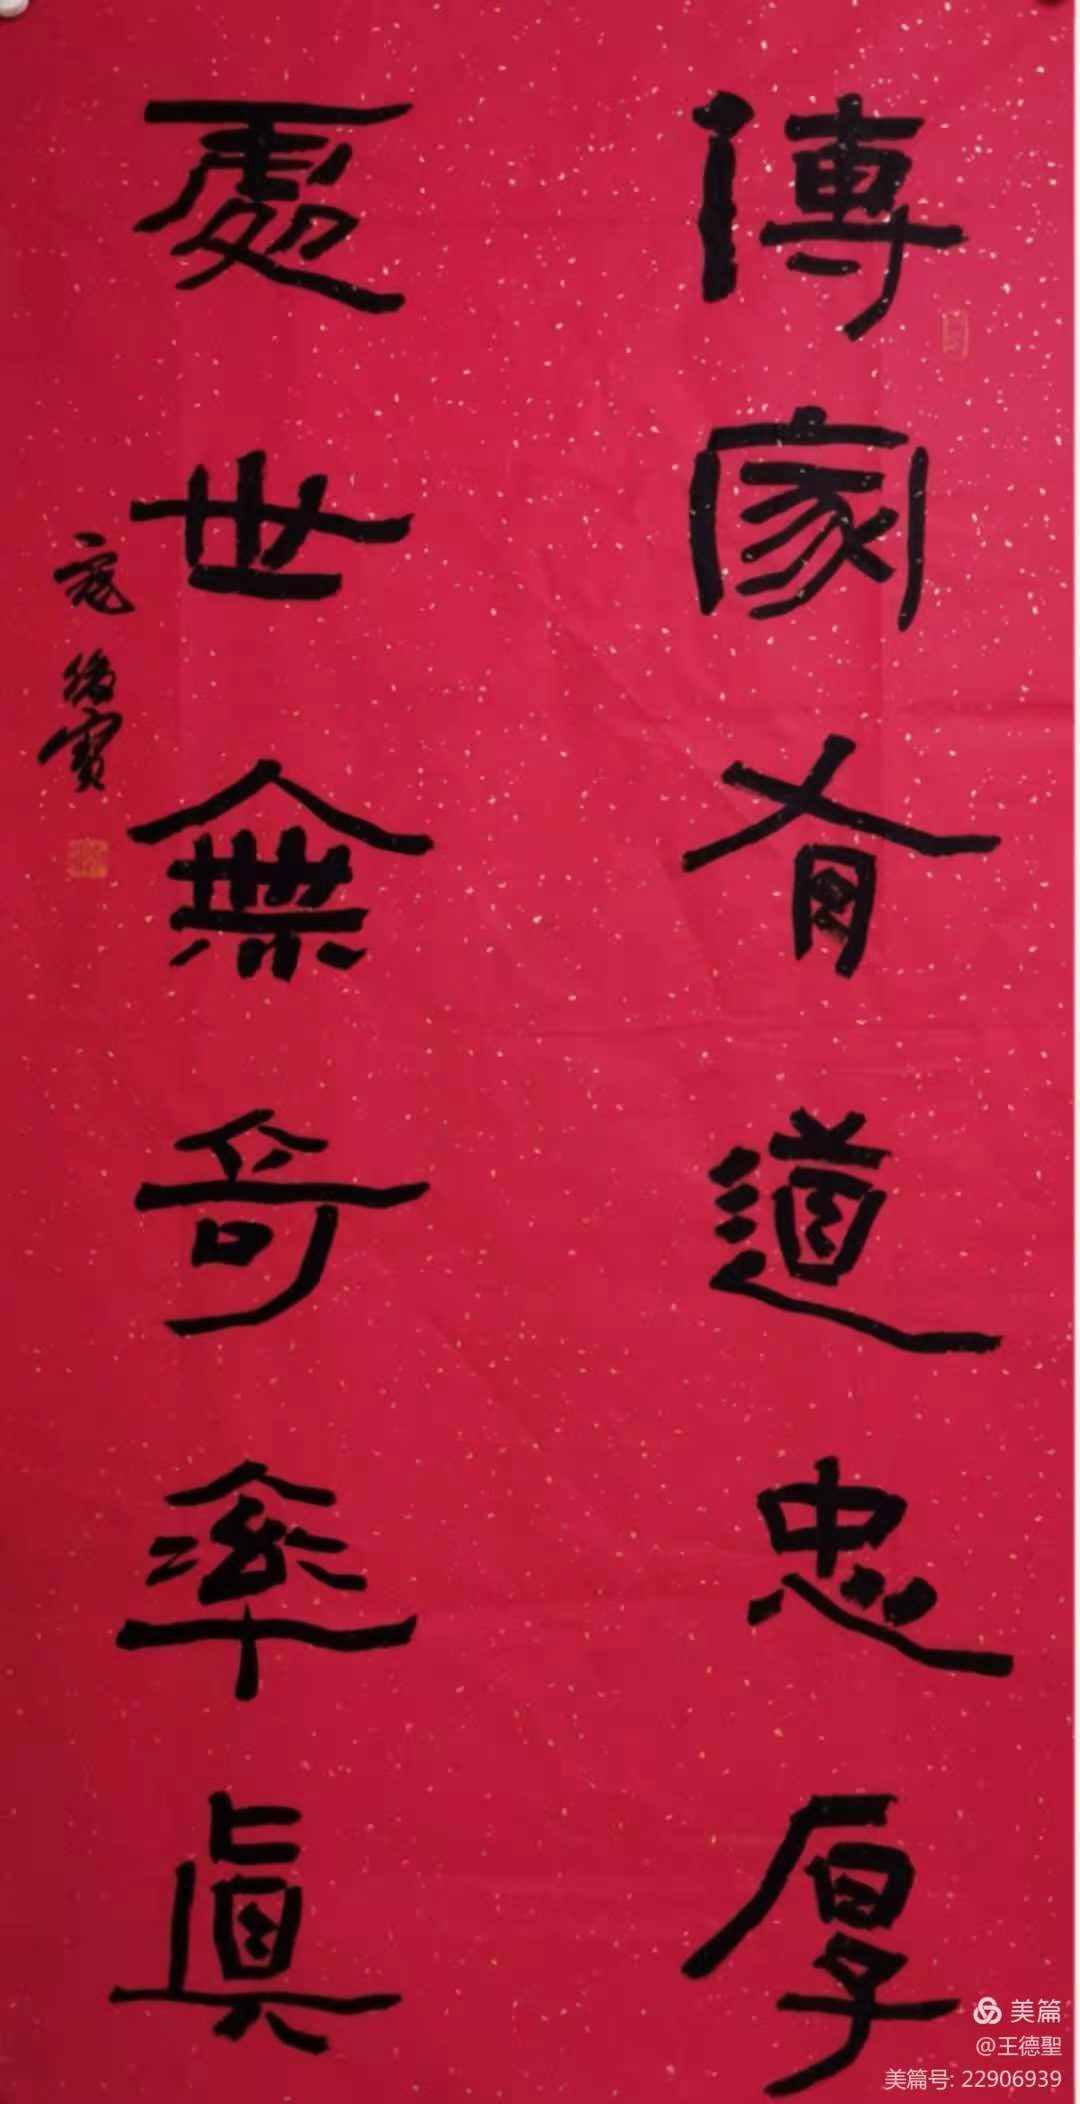 傳家有道忠厚
處世無奇率真
寇後寶
美篇
@王德聖
美篇号: 22906939